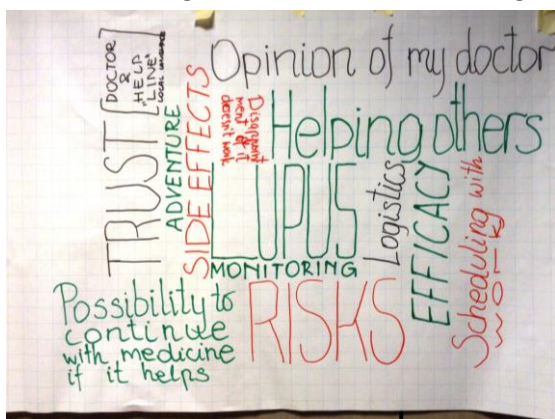 TRUST
[DOCTOR
&
"HELP
LINE"
LOCAL LANGUAGE]
ADVENTURE
SIDE EFFECTS
Opinion of my doctor
Disappoint
ment if it
doesn't work
Helping others
LUPUS
MONITORING
Logistics
EFFICACY
Scheduling with
work
Possibility to
continue
with medicine
if it helps
RISKS